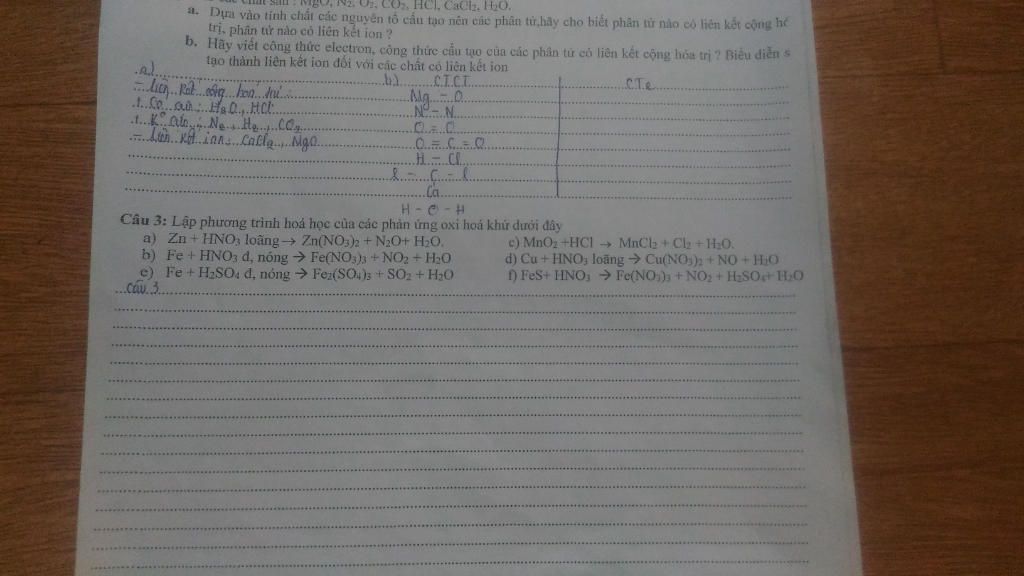 các chất sau : MgO, N₂, O₂, CO₂, HCl, CaCl₂, H₂O.
a. Dựa vào tính chất các nguyên tố cấu tạo nên các phân tử,hãy cho biết phân tử nào có liên kết cộng hó
trị, phân tử nào có liên kết ion ?
b. Hãy viết công thức electron, công thức cấu tạo của các phân tử có liên kết cộng hóa trị ? Biểu diễn s
tạo thành liên kết ion đối với các chất có liên kết ion
a) b) CTCT CTe
- Liên kết cộng hoá trị: Mg - O
+ Có cực: H₂O, HCl N - N
+ K° cực: N₂, H₂, CO₂ O = O
- Liên kết ion: CaCl₂, MgO O = C = O
H - Cl
l - C - l
Ca
H - O - H
Câu 3: Lập phương trình hoá học của các phản ứng oxi hoá khử dưới đây
a) Zn + HNO₃ loãng → Zn(NO₃)₂ + N₂O+ H₂O. c) MnO₂ +HCl → MnCl₂ + Cl₂ + H₂O.
b) Fe + HNO₃ đ, nóng → Fe(NO₃)₃ + NO₂ + H₂O d) Cu + HNO₃ loãng → Cu(NO₃)₂ + NO + H₂O
e) Fe + H₂SO₄ đ, nóng → Fe₂(SO₄)₃ + SO₂ + H₂O f) FeS+ HNO₃ → Fe(NO₃)₃ + NO₂ + H₂SO₄+ H₂O
Câu 3